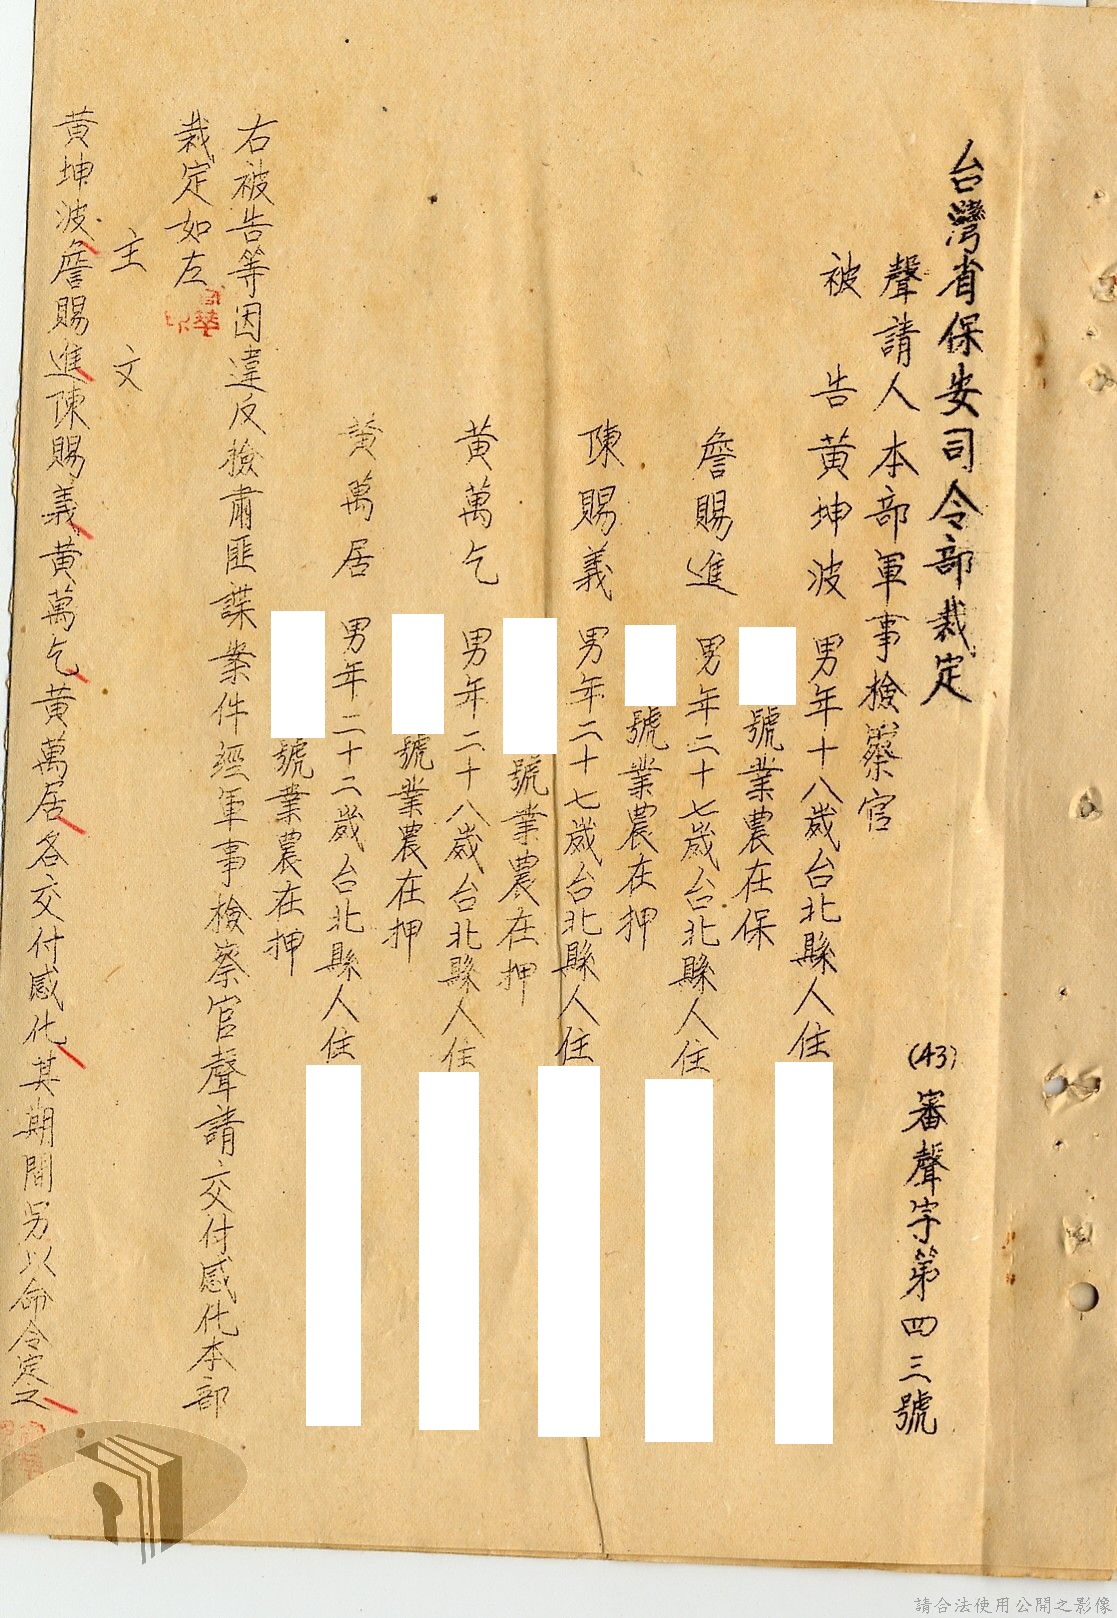 台灣省保安司令部裁定
(43)審聲字第四三號
聲請人本部軍事檢察官
被告黃坤波男年十八歲台北縣人住
號業農在保
詹賜進男年二十七歲台北縣人住
號業農在押
陳賜義男年二十七歲台北縣人住
號業農在押
黃萬乞男年二十八歲台北縣人住
號業農在押
黃萬居男年二十二歲台北縣人住
號業農在押
右被告等因違反檢肅匪諜案件經軍事檢察官聲請交付感化本部
裁定如左
主文
黃坤波詹賜進陳賜義黃萬乞黃萬居各交付感化其期間另以命令定之
請合法使用公開之影像